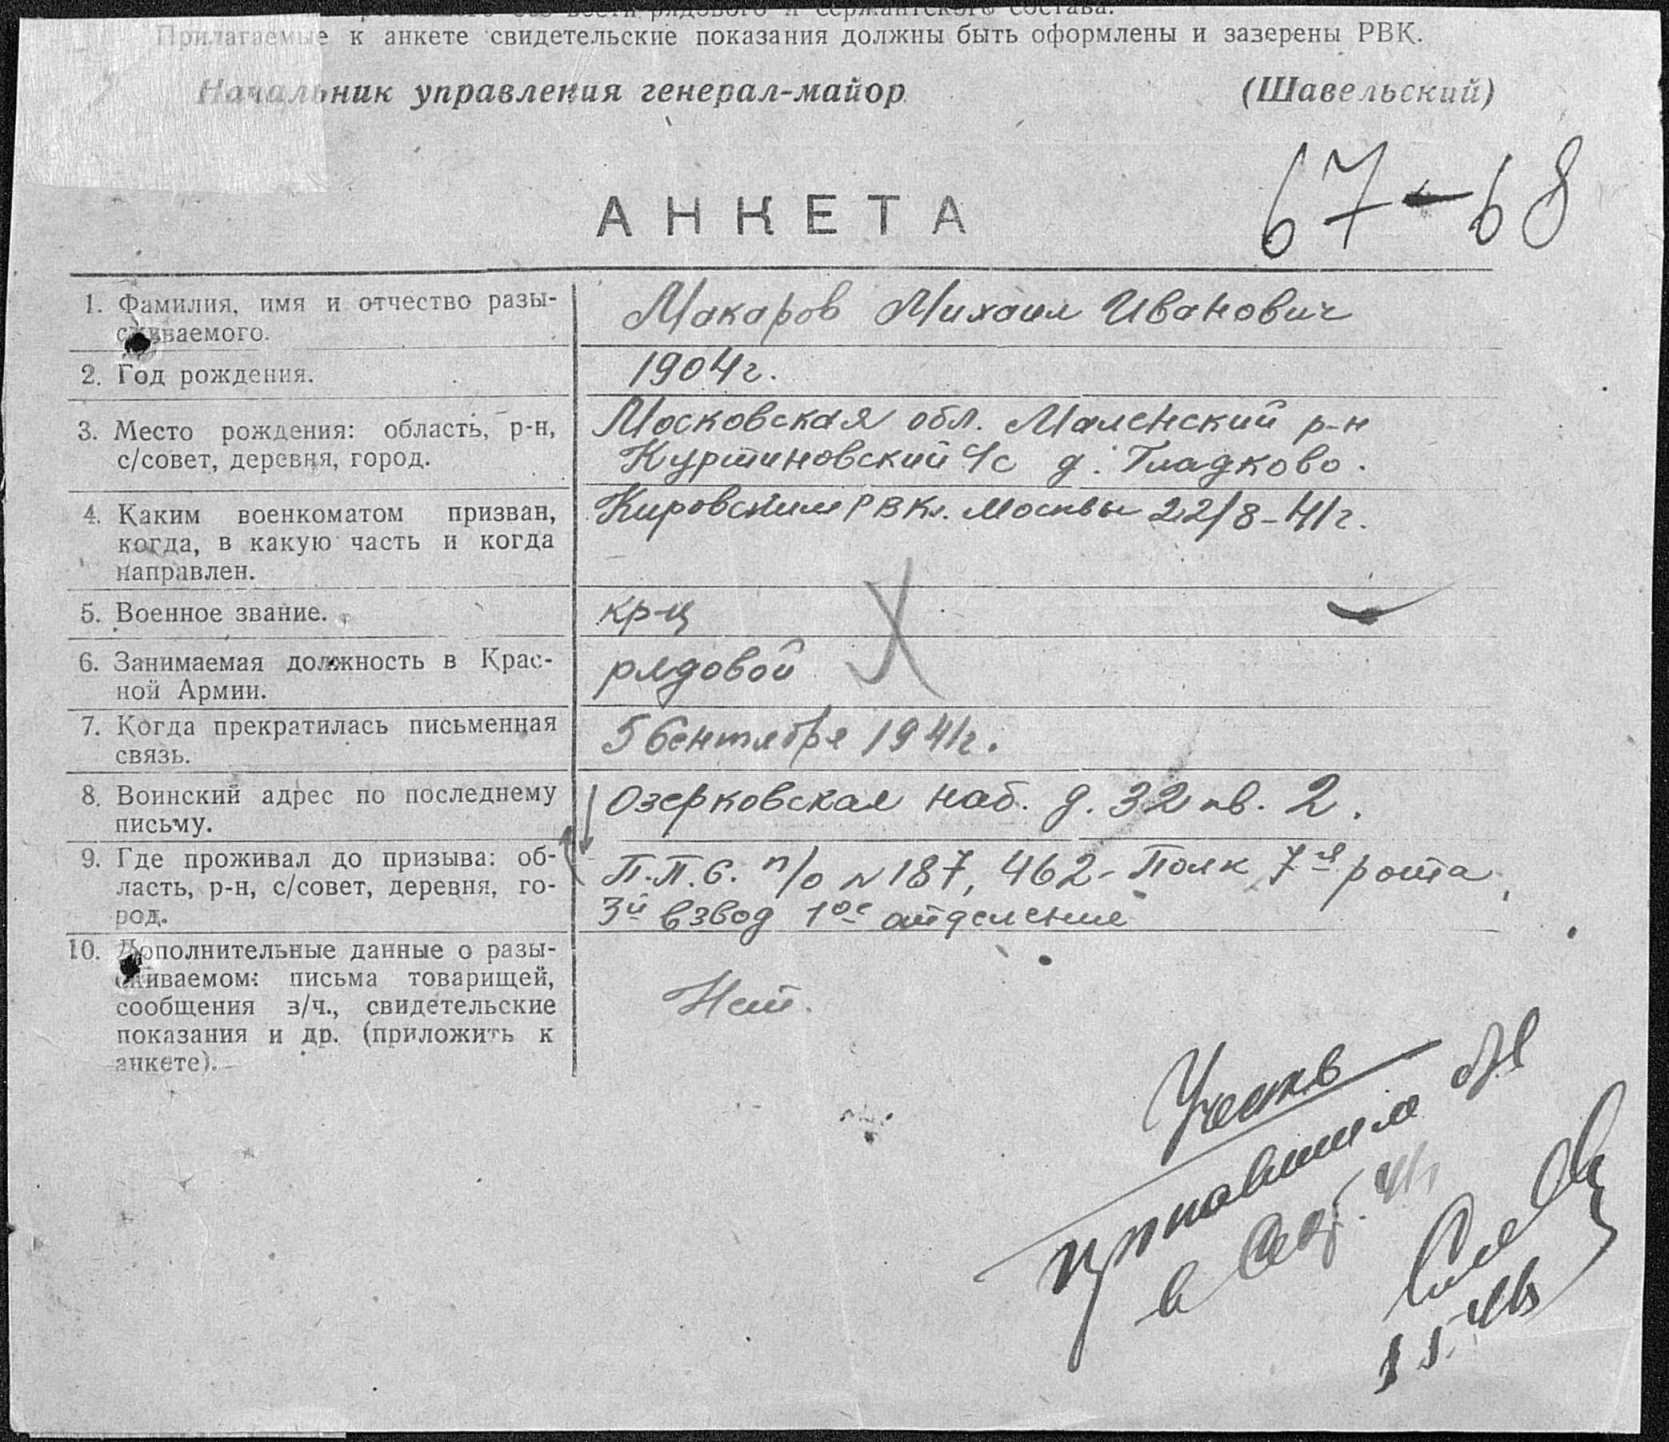 рядового и сержантского состава.
Прилагаемые к анкете свидетельские показания должны быть оформлены и зазерены РВК.
Начальник управления генерал-майор (Шавельский)
67-68
АНКЕТА
1. Фамилия, имя и отчество разы-
скиваемого.
Макаров Михаил Иванович
2. Год рождения.
1904г.
3. Место рождения: область, р-н,
с/совет, деревня, город.
Московская обл. Маленский р-н
Куртиновский с/с д. Гладково.
4. Каким военкоматом призван,
когда, в какую часть и когда
направлен.
Кировским РВК г. Москвы 22/8-41г.
5. Военное звание.
кр-ц
6. Занимаемая должность в Крас-
ной Армии.
рядовой
7. Когда прекратилась письменная
связь.
5 Сентября 1941г.
8. Воинский адрес по последнему
письму.
Озерковская наб. д. 32 кв. 2.
9. Где проживал до призыва: об-
ласть, р-н, с/совет, деревня, го-
род.
П.П.С. п/о №187, 462-Полк 7-я рота
3й взвод 1ое отделение
10. Дополнительные данные о разы-
скиваемом: письма товарищей,
сообщения з/ч., свидетельские
показания и др. (приложить к
анкете).
Нет.
Учесть
пропавшим
в 41